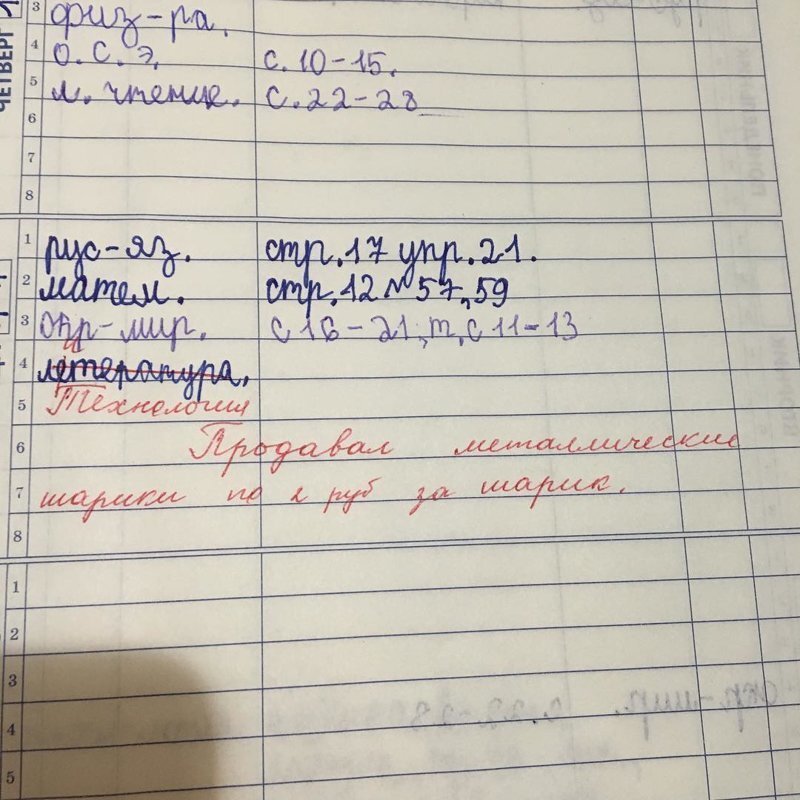 ЧЕТВЕРГ
3 физ-ра.
4 о. с. э. с. 10-15.
5 л. чтение. с. 22-28
6
7
8
1 рус-яз. стр. 17 упр. 21.
2 матем. стр. 12 №57, 59
3 окр-мир. с 16-21, т, с 11-13
4 летература.
и
5 Технология
6 Продавал металлические
7 шарики по 2 руб за шарик.
8
1
2
3
4
5